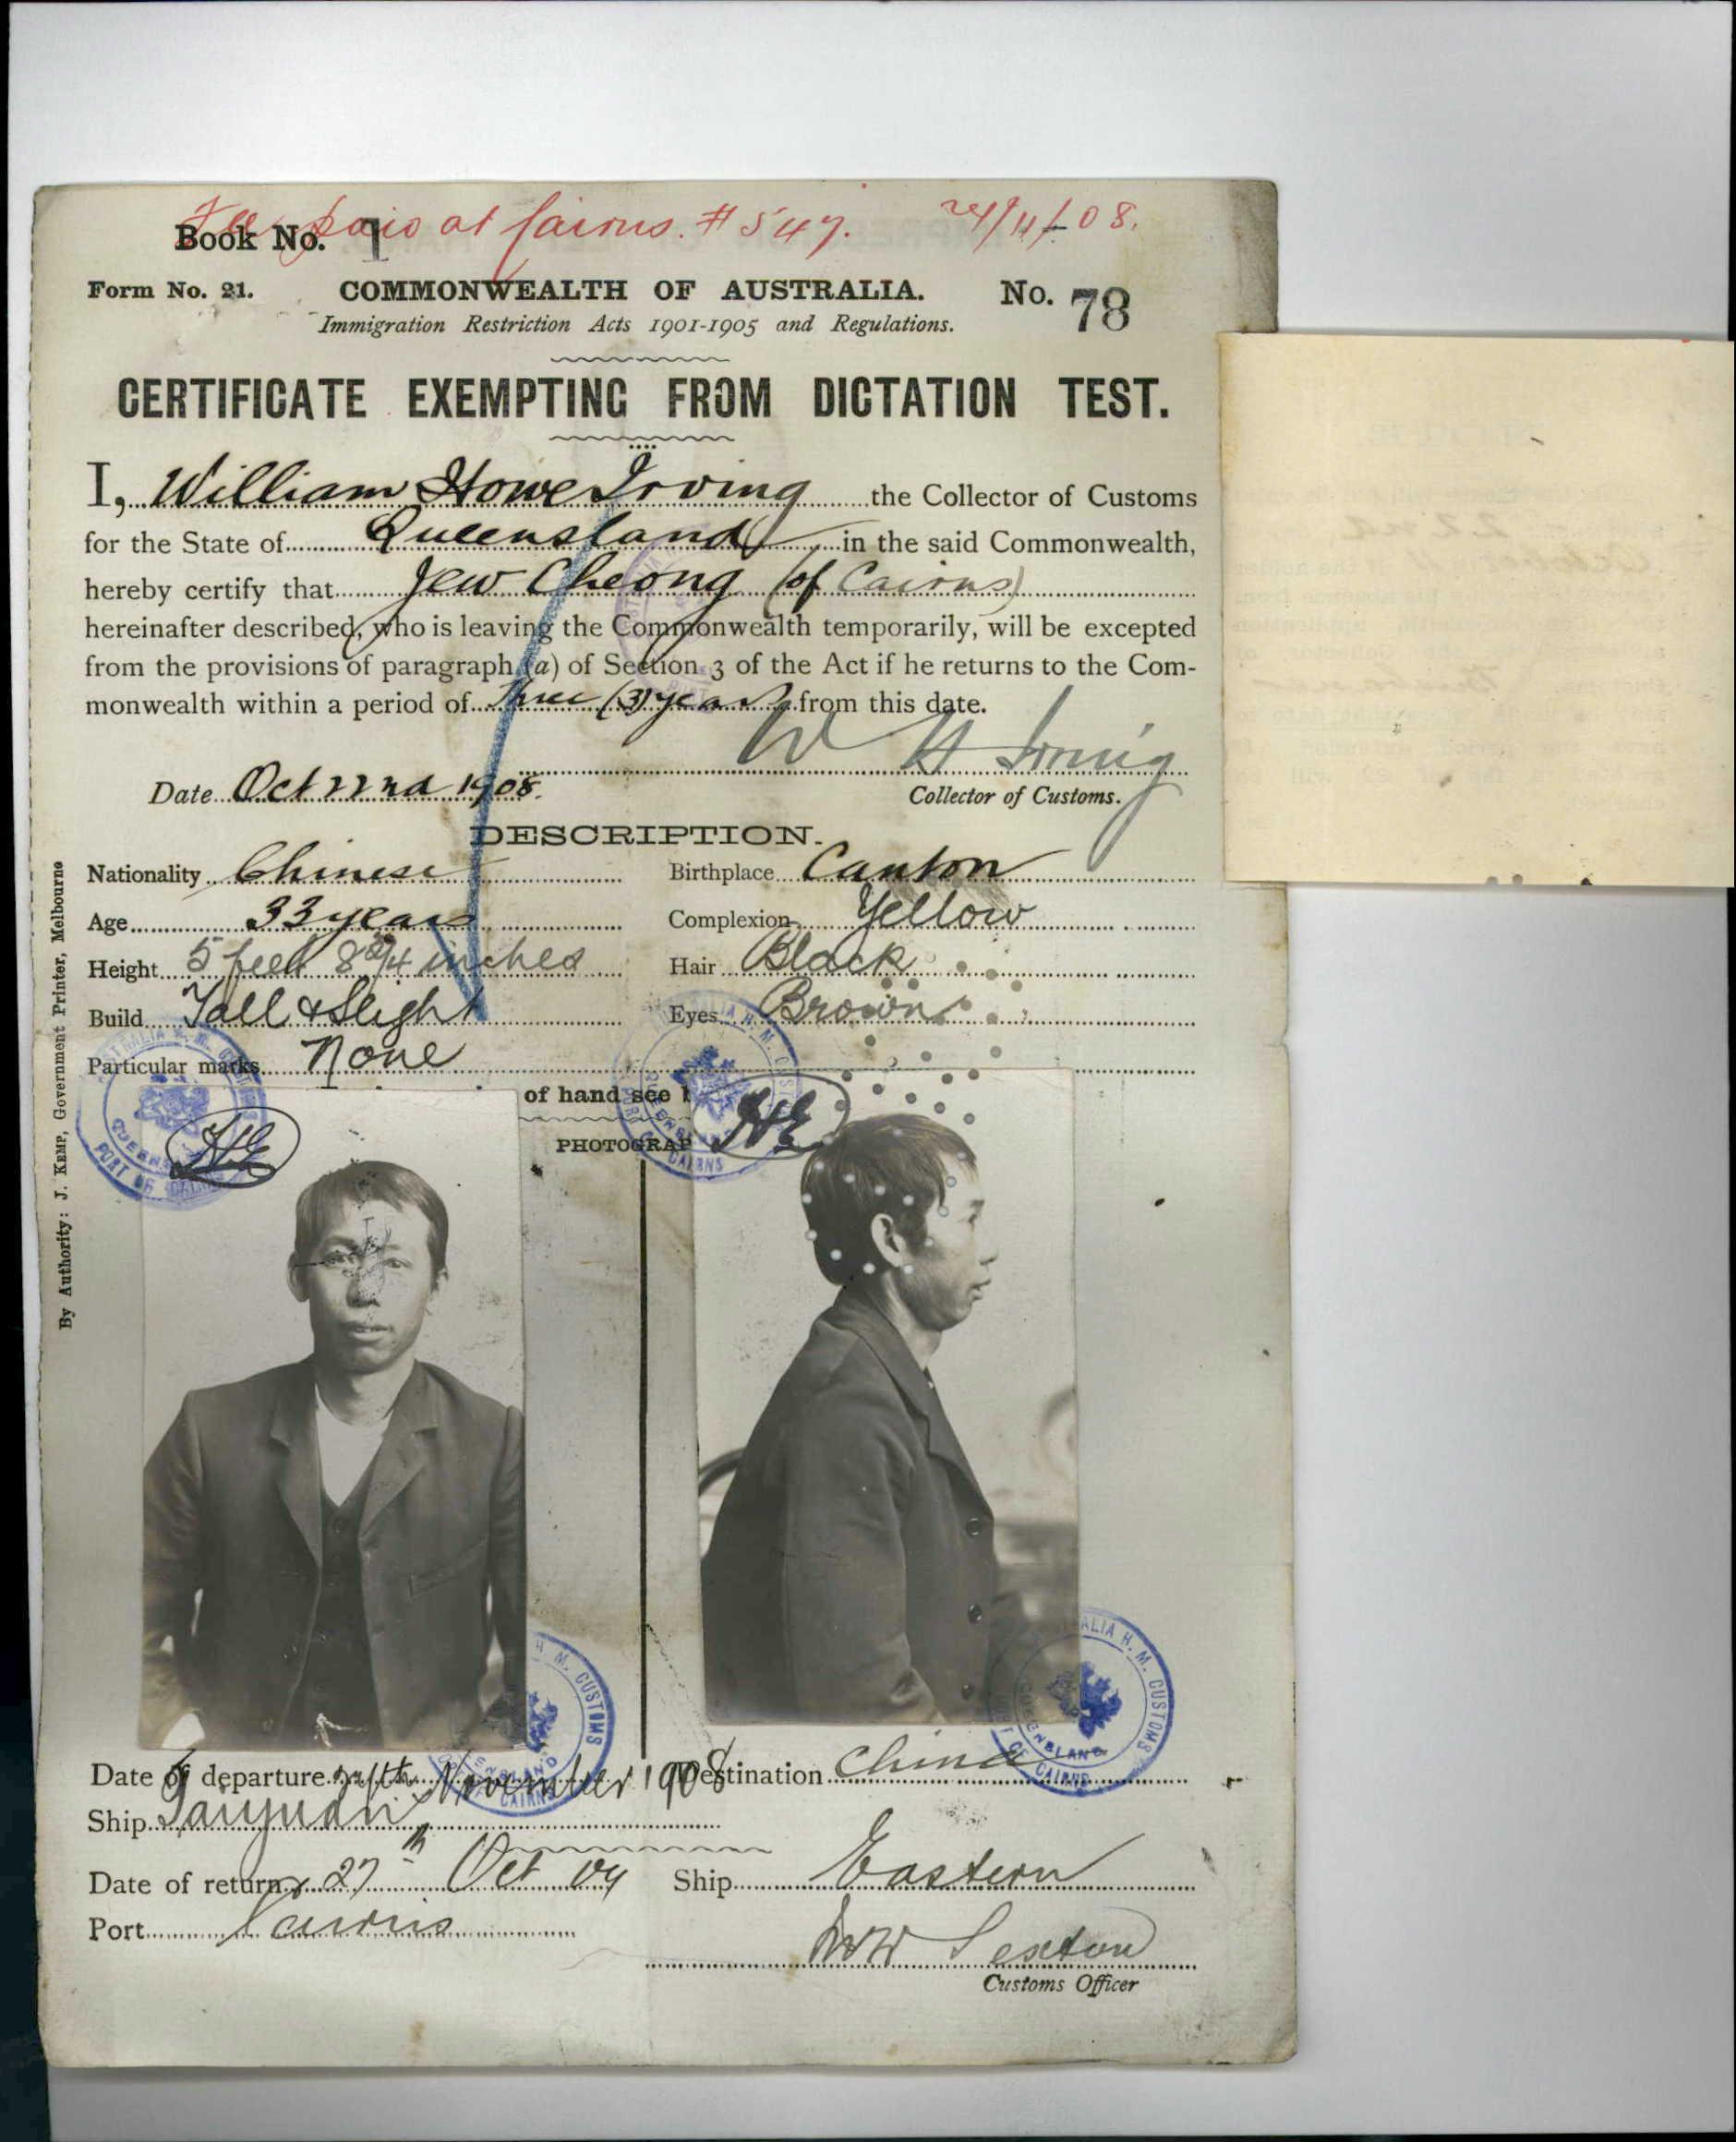 Fee paid at Cairns. # 547. 24/11/08.
Book No. 1
Form No. 21. COMMONWEALTH OF AUSTRALIA. No. 78
Immigration Restriction Acts 1901-1905 and Regulations.
CERTIFICATE EXEMPTING FROM DICTATION TEST.
I, William Howe Irving the Collector of Customs
for the State of Queensland in the said Commonwealth,
hereby certify that Jew Cheong (of Cairns)
hereinafter described, who is leaving the Commonwealth temporarily, will be excepted
from the provisions of paragraph (a) of Section 3 of the Act if he returns to the Com-
monwealth within a period of three (3) years from this date.
W H Irving
Date Oct 22nd 1908. Collector of Customs.
DESCRIPTION.
Nationality Chinese Birthplace Canton
Age 33 years Complexion Yellow
Height 5 feet 8 3/4 inches Hair Black
Build Tall & Slight Eyes Brown
Particular marks None
of hand see
PHOTOGRAP
PORT OF CAIRNS
QUEENSLAND
AUSTRALIA H. M. CUSTOMS
By Authority: J. KEMP, Government Printer, Melbourne
Date of departure 24th November 1908 Destination China
Ship Taiyuan
Date of return 27th Oct 09 Ship Eastern
Port Cairns
Sexton
Customs Officer